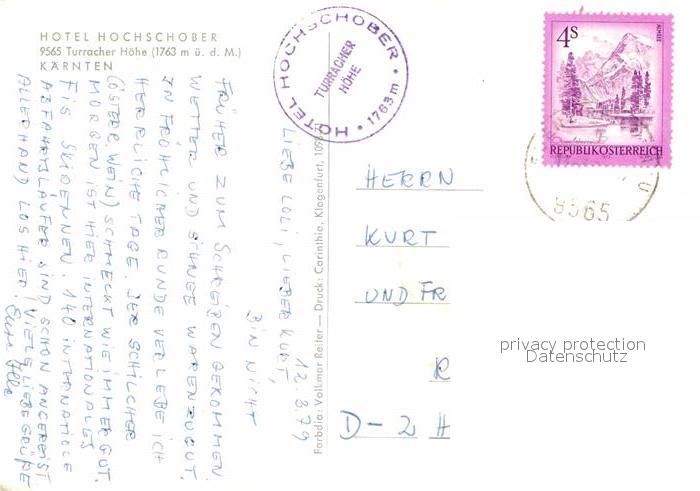 HOTEL HOCHSCHOBER
9565 Turracher Höhe (1763 m ü. d. M.)
KÄRNTEN
HOTEL HOCHSCHOBER
TURRACHER
HÖHE
• 1763m •
4s
ALMSEE
REPUBLIK ÖSTERREICH
9565
12.3.79
LIEBE LOLI, LIEBER KURT,
BIN NICHT
FRÜHER ZUM SCHREIBEN GEKOMMEN.
WETTER UND SCHNEE WAREN ZU GUT.
IN FRÖHLICHER RUNDE VERLEBE ICH
HERRLICHE TAGE. DER SCHILCHER
(ÖSTERR. WEIN) SCHMECKT WIE IMMER GUT.
MORGEN IST HIER INTERNATIONALES
FIS SKIRENNEN. 140 INTERNATIOLE
ABFAHRTSLÄUFER SIND SCHON ANGEREIST
ALLERHAND LOS HIER. VIELE LIEBE GRÜßE
Farbdia: Volkmar Reiter — Druck: Carinthia, Klagenfurt, 1098
HERRN
KURT
UND FR
R
D-2 H
privacy protection
Datenschutz